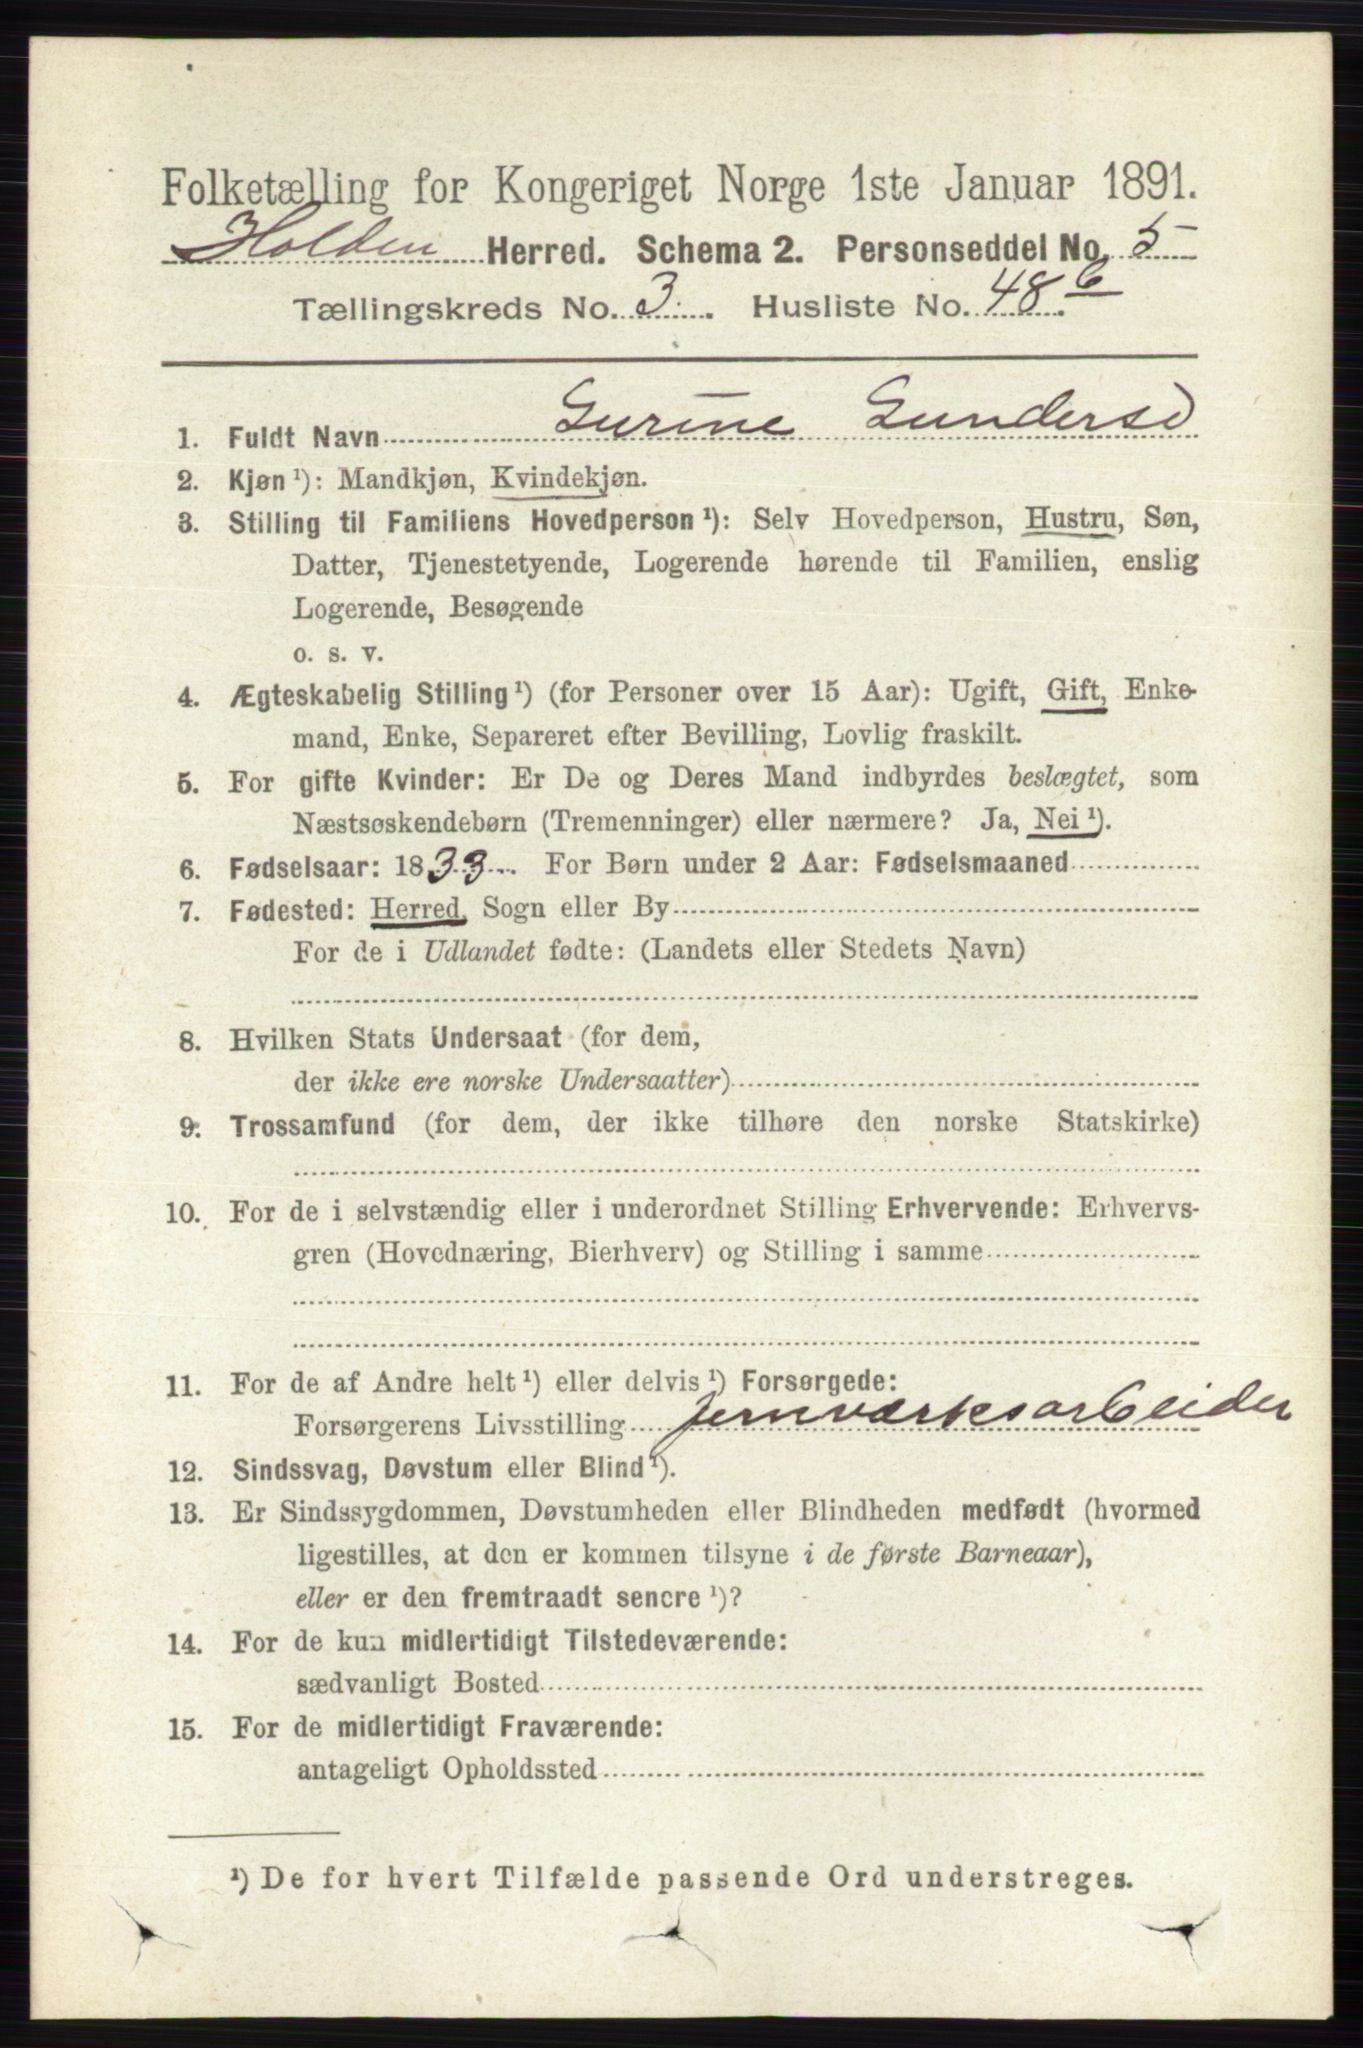 Folketælling for Kongeriget Norge 1ste Januar 1891.
Holden Herred. Schema 2. Personseddel No. 5
Tællingskreds No. 3. Husliste No. 48 6.
1. Fuldt Navn Gurine Gundersd
2. Kjøn ¹): Mandkjøn, Kvindekjøn.
3. Stilling til Familiens Hovedperson ¹): Selv Hovedperson, Hustru, Søn,
Datter, Tjenestetyende, Logerende hørende til Familien, enslig
Logerende, Besøgende
o. s. v.
4. Ægteskabelig Stilling ¹) (for Personer over 15 Aar): Ugift, Gift, Enke-
mand, Enke, Separeret efter Bevilling, Lovlig fraskilt.
5. For gifte Kvinder: Er De og Deres Mand indbyrdes beslægtet, som
Næstsøskendebørn (Tremenninger) eller nærmere? Ja, Nei ¹).
6. Fødselsaar: 1833. For Børn under 2 Aar: Fødselsmaaned
7. Fødested: Herred, Sogn eller By
For de i Udlandet fødte: (Landets eller Stedets Navn)
8. Hvilken Stats Undersaat (for dem,
der ikke ere norske Undersaatter)
9. Trossamfund (for dem, der ikke tilhøre den norske Statskirke)
10. For de i selvstændig eller i underordnet Stilling Erhvervende: Erhvervs-
gren (Hovednæring, Bierhverv) og Stilling i samme
11. For de af Andre helt ¹) eller delvis ¹) Forsørgede:
Forsørgerens Livsstilling Jernværksarbeider
12. Sindssvag, Døvstum eller Blind ¹).
13. Er Sindssygdommen, Døvstumheden eller Blindheden medfødt (hvormed
ligestilles, at den er kommen tilsyne i de første Barneaar),
eller er den fremtraadt senere ¹)?
14. For de kun midlertidigt Tilstedeværende:
sædvanligt Bosted
15. For de midlertidigt Fraværende:
antageligt Opholdssted
¹) De for hvert Tilfælde passende Ord understreges.